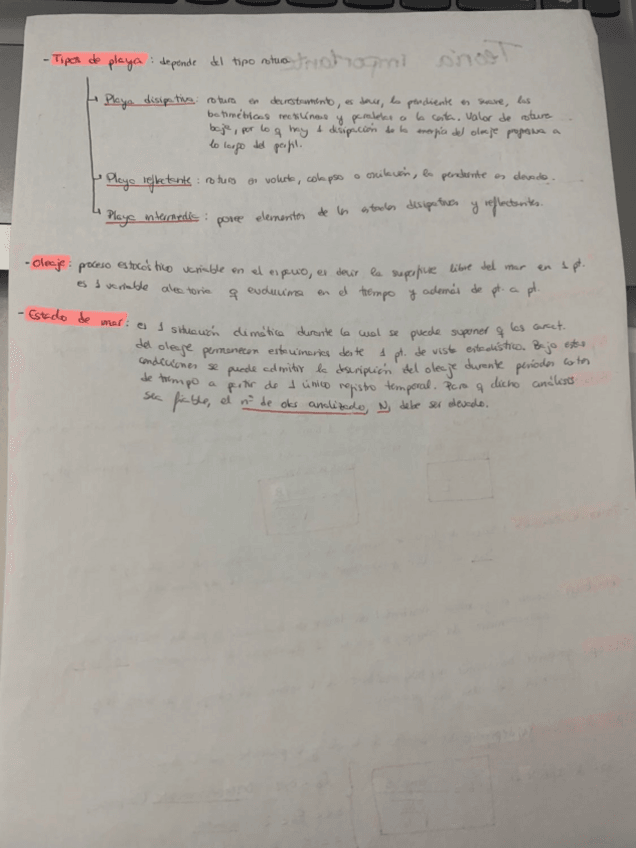 - Tipos de playa : depende del tipo rotura
Playa disipativa : rotura en decrestramento, es decir, la pendiente es suave, las
batimétricas rectilíneas y paralelas a la costa. Valor de rotura
baja, por lo q hay 1 disipación de la energía del oleaje progresiva a
lo largo del perfil.
Playa reflectante : rotura en voluta, colapso u oscilación, la pendiente es elevada.
Playa intermedia : posee elementos de los estados disipativos y reflectantes.
- Oleaje : proceso estocástico variable en el espacio, es decir la superficie libre del mar en 1 pt.
es 1 variable aleatoria q evoluciona en el tiempo y además de pt. a pt.
- Estado de mar : es 1 situación climática durante la cual se puede suponer q las caract.
del oleaje permanecen estacionarias desde 1 pt. de vista estadístico. Bajo estas
condiciones se puede admitir la descripción del oleaje durante periodos cortos
de tiempo a partir de 1 único registro temporal. Para q dicho análisis
sea fiable, el nº de olas analizado, N, debe ser elevado.
Teoría importante